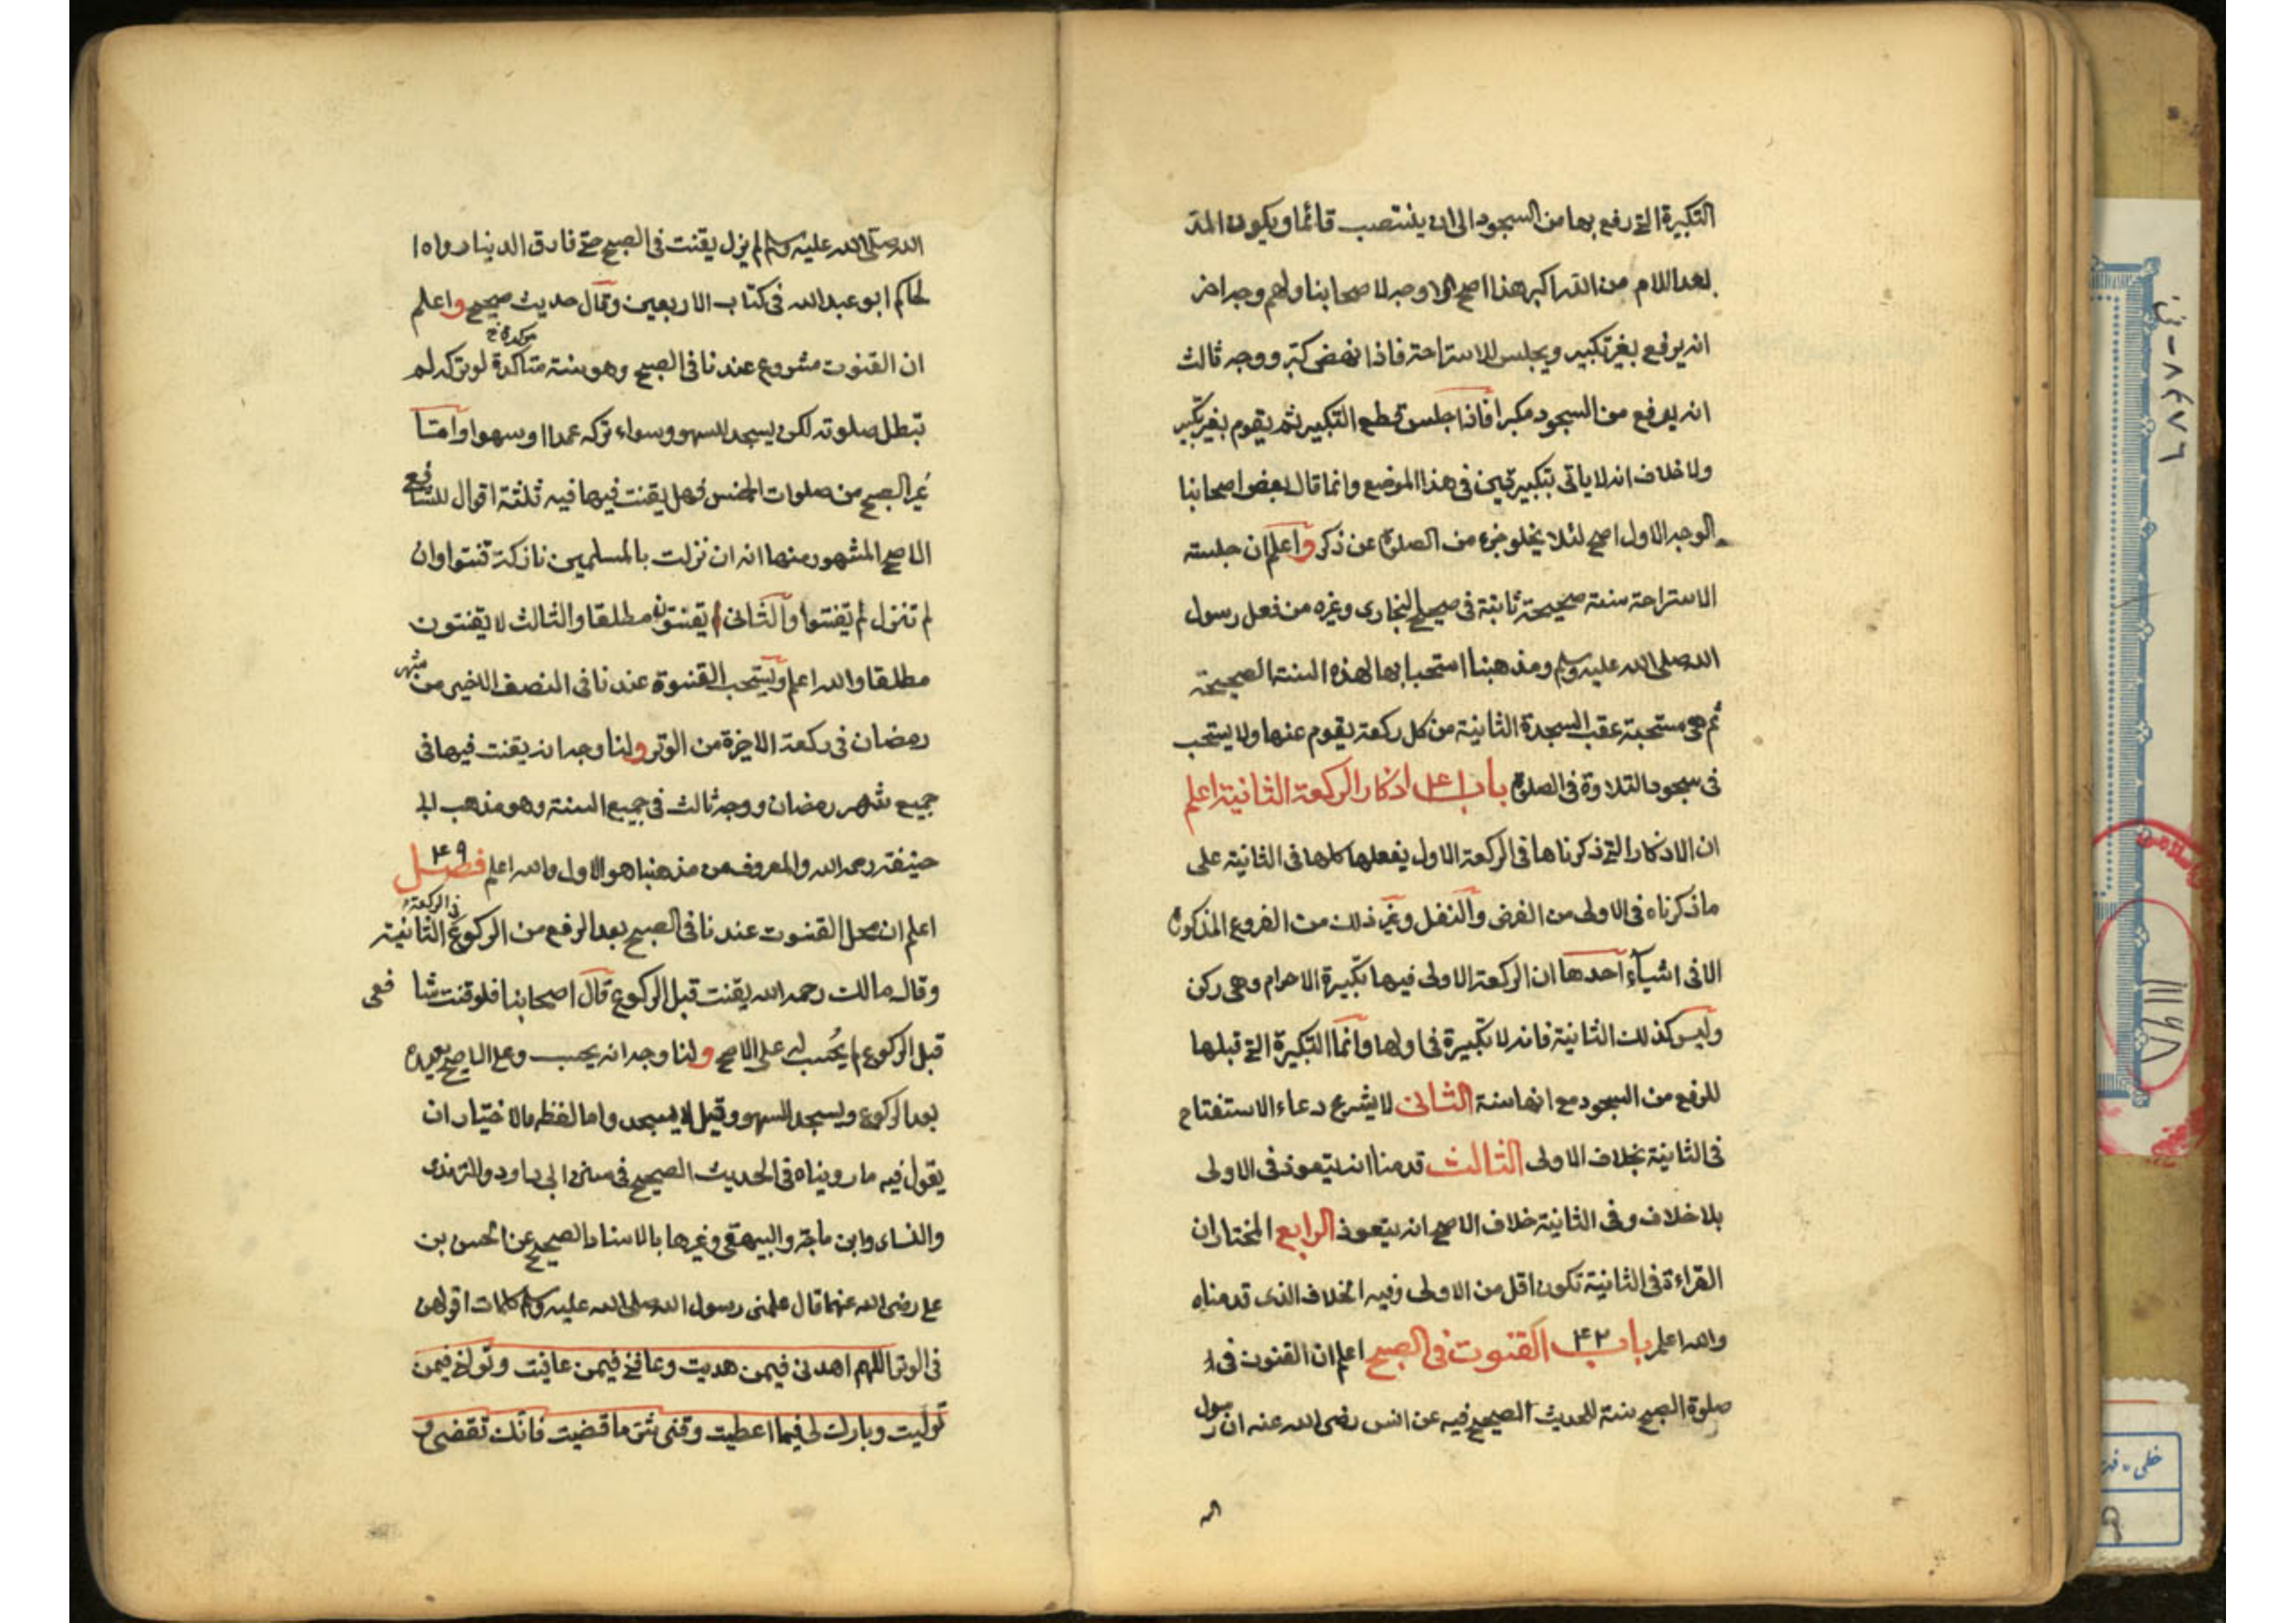 التكبيرة التي رفع بها من السجود الى ان ينتصب قائما ويكون المد
بعد اللام من الله اكبر هذا اصح الاوجه لاصحابنا ولهم وجه اخر
انه يرفع بغير تكبير ويجلس للاستراحة فاذا نهض كبر ووجه ثالث
انه يرفع من السجود مكبرا فاذا جلس قطع التكبير ثم يقوم بغير تكبير
ولا خلاف انه لا ياتى بتكبيرتين فى هذا الموضع وانما قال بعض اصحابنا
الوجه الاول اصح لئلا يخلو جزء من الصلوة عن ذكر واعلم ان جلسته
الاستراحة سنة صحيحة ثابتة فى صحيح البخارى وغيره من فعل رسول
الله صلى الله عليه وسلم ومذهبنا استحبابها لهذه السنة الصحيحة
ثم هى مستحبة عقب السجدة الثانية من كل ركعة يقوم عنها ولا يستحب
فى سجود التلاوة فى الصلوة باب ۴۱ اذكار الركعة الثانية اعلم
ان الاذكار التي ذكرناها فى الركعة الاول يفعلها كلها فى الثانية على
ما ذكرناه فى الاولى من الفرض والنفل وغير ذلك من الفروع المذكورة
الا فى اشيآء احدها ان الركعة الاولى فيها تكبيرة الاحرام وهى ركن
وليس كذلك الثانية فانه لا تكبيرة فى اولها وانما التكبيرة التي قبلها
للرفع من السجود مع انها سنة الثانى لا يشرع دعاء الاستفتاح
فى الثانية بخلاف الاولى الثالث قدمنا انه يتعوذ فى الاولى
بلا خلاف وفى الثانية خلاف الاصح انه يتعوذ الرابع المختار ان
القراءة فى الثانية تكون اقل من الاولى وفيه الخلاف الذى قدمناه
والله اعلم باب ۴۲ القنوت فى الصبح اعلم ان القنوت فى
صلوة الصبح سنة للحديث الصحيح فيه عن انس رضى الله عنه ان رسول
الله صلى الله عليه وسلم لم يزل يقنت فى الصبح حتى فارق الدنيا رواه ا
لحاكم ابو عبد الله فى كتاب الاربعين وقال حديث صحيح واعلم
مؤكدة خ
ان القنوت مشروع عندنا فى الصبح وهو سنة متاكدة لو تركه لم
تبطل صلوته لكن يسجد للسهو وسواء تركه عمدا او سهوا واما
غير الصبح من صلوات الخمس فهل يقنت فيها فيه ثلثة اقوال للشافعى
الاصح المشهور منها انه ان نزلت بالمسلمين نازلة قنتوا وان
لم تنزل لم يقنتوا والثانى يقنتون مطلقا والثالث لا يقنتون
مطلقا والله اعلم ويستحب القنوة عندنا فى النصف الاخير من شهر
رمضان فى ركعة الاخرة من الوتر ولنا وجه انه يقنت فيها فى
جميع شهر رمضان ووجه ثالث فى جميع السنة وهو مذهب ابى
حنيفة رحمه الله والمعروف من مذهبنا هو الاول والله اعلم فصل ۴۹
فى الركعة
اعلم ان محل القنوت عندنا فى الصبح بعد الرفع من الركوع الثانية
وقال مالك رحمه الله يقنت قبل الركوع قال اصحابنا فلو قنت شا فعى
قبل الركوع لم يحسب له على الاصح ولنا وجه انه يحسب وعلى الاصح يعيده
بعد الركوع ويسجد للسهو وقيل لا يسجد واما لفظه فالاختيار ان
يقول فيه ما رويناه فى الحديث الصحيح فى سنن ابى داود والترمذى
والنسائى وابن ماجة والبيهقى وغيرها بالاسناد الصحيح عن الحسن بن
على رضى الله عنهما قال علمنى رسول الله صلى الله عليه وسلم كلمات اقولهن
فى الوتر اللهم اهدنى فيمن هديت وعافنى فيمن عافيت وتولنى فيمن
توليت وبارك لى فيما اعطيت وقنى شر ما قضيت فانك تقضى و